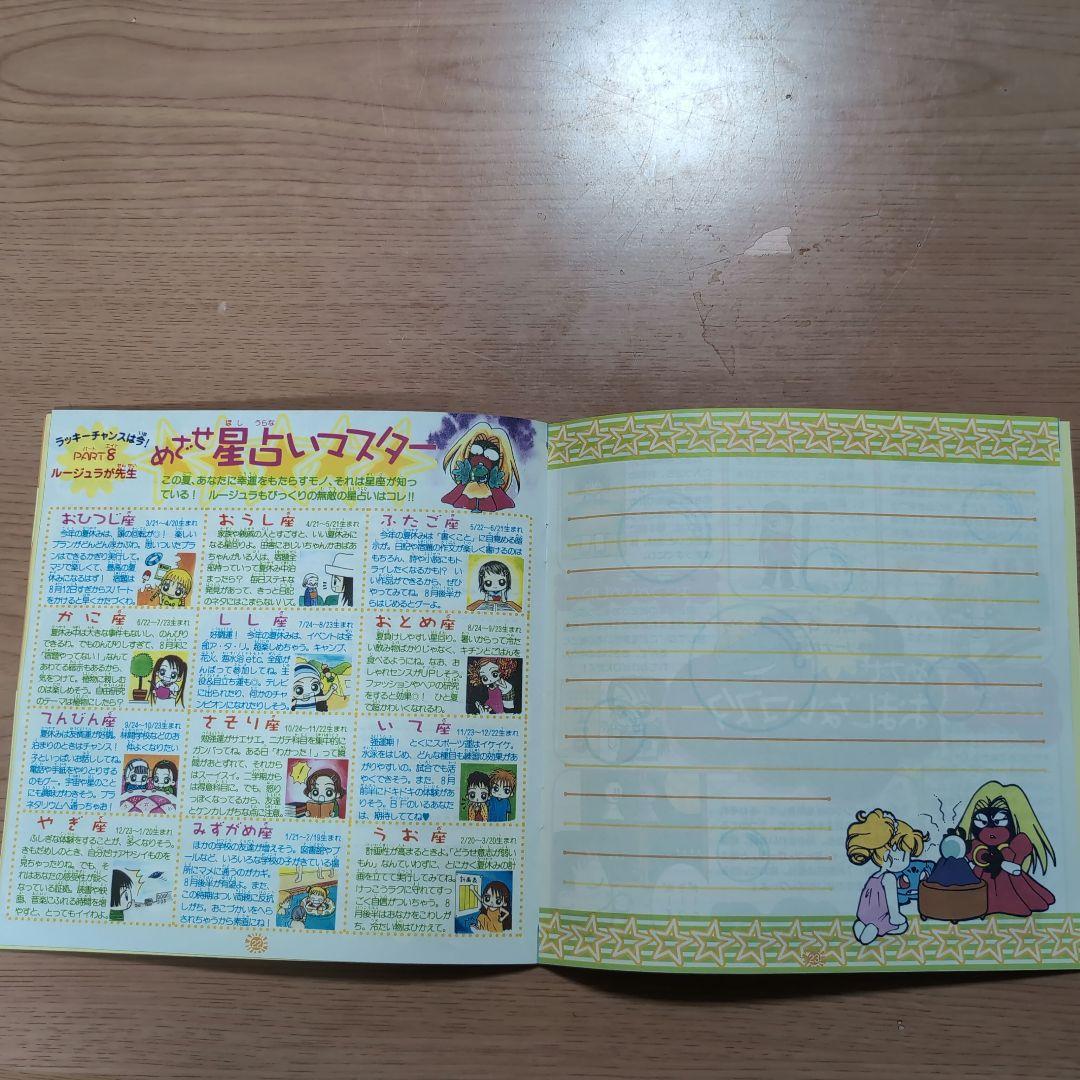 ラッキーチャンスは今!
PART8
ルージュラが先生
めざせ星占いマスター
この夏、あなたに幸運をもたらすモノ、それは星座が知っ
ている! ルージュラもびっくりの無敵の星占いはコレ!!
おひつじ座 3/21〜4/20生まれ
今年の夏休みは、頭の回転が◎! 楽しい
プランがどんどん浮かぶわ。思いついたプラ
ンはできるかぎり実行して。
マジで楽しくて、最高の夏
休みになるはず! 宿題は
8月12日すぎからスパート
をかけると早くかたづくわ。
おうし座 4/21〜5/21生まれ
家族や親戚の人とすごすと、いい夏休みに
なる星回りよ。田舎におじいちゃんかおばあ
ちゃんがいる人は、宿題全
部持っていって夏休み中泊
まったら? 毎日ステキな
発見があって、きっと日記
のネタにはこまらないいて。
ふたご座 5/22〜6/21生まれ
今年の夏休みは「書くこと」に目覚める暗
示が。日記や宿題の作文が楽しく書けるのは
もちろん、詩や小説にもト
ライしたくなるかも!? い
い作品ができるから、ぜひ
やってみてね。8月後半か
らはじめるとグーよ。
かに座 6/22〜7/23生まれ
夏休み中は大きな事件もないし、のんびり
できるわ。でものんびりしすぎて、8月末に
「宿題やってない!」なんて
あわてる暗示もあるから、
気をつけて。植物に親しむ
のは楽しめそう。自由研究
のテーマは植物にしたら?
しし座 7/24〜8/23生まれ
好調運! 今年の夏休みは、イベントは全
部ア・タ・リ。超楽しめちゃう。キャンプ、
花火、海水浴etc.全部が
んばって参加してね。主
役&目立ち運も◎。テレビ
に出られたり、何かのチャ
ンピオンになれたりしそう。
おとめ座 8/24〜9/23生まれ
夏負けしやすい星回り。暑いからって冷た
い飲み物ばかりじゃなく、キチンとごはんを
食べるようにね。なお、お
しゃれセンスがUPしそう。
ファッションやヘアの研究
をすると効果◎! ひと夏
で超かわいくなれるわ。
てんびん座 9/24〜10/23生まれ
夏休みは友情運が好調。林間学校などのお
泊まりのときはチャンス! 仲よくなりたい
子といっぱいお話ししてね。
電話や手紙をやりとりする
のもグー。宇宙や星のこと
にも興味がわきそう。プラ
ネタリウムへ通っちゃお!
さそり座 10/24〜11/22生まれ
勉強運がサエサエ。ニガテ科目を集中的に
ガンバってね。ある日「わかった!」って瞬
間がおとずれて、それから
はスーイスイ。二学期から
は得意科目に。でも、怒り
っぽくなってるから、友だ
とケンカしがちな点に注意。
いて座 11/23〜12/22生まれ
強運期! とくにスポーツ運はイケイケ。
水泳をはじめ、どんな種目も練習の効果があ
がりやすいの。試合でも活
やくできそう。また、8月
前半にドキドキの体験があ
りそう。BFのいるあなた
は、期待しててね♥
やぎ座 12/23〜1/20生まれ
ふしぎな体験をすることが、多くなりそう。
きもだめしのとき、自分だけアヤシイものを
見ちゃったりね。でも、そ
れはあなたの感受性が鋭く
なっている証拠。読書や映
画、音楽にふれる時間を増
やすと、とってもイイわよ。
みずがめ座 1/21〜2/19生まれ
ほかの学校の友達が増えそう。図書館やプ
ールなど、いろいろな学校の子がきている場
所にマメに通うのがカギ。
8月後半が有望よ。また、
この時期はつい両親に反抗
しがち。おこづかいをへら
されちゃうから素直にね!
うお座 2/20〜3/20生まれ
計画性が高まるときよ。「どうせ意志が弱い
もん」なんていわずに、とにかく夏休みの計
画を立てて実行してみてね。
けっこうラクに守れてすっ
ごく自信がついちゃう。8
月後半はおなかをこわしが
ち。冷たい物はひかえて。
計画表
22
23